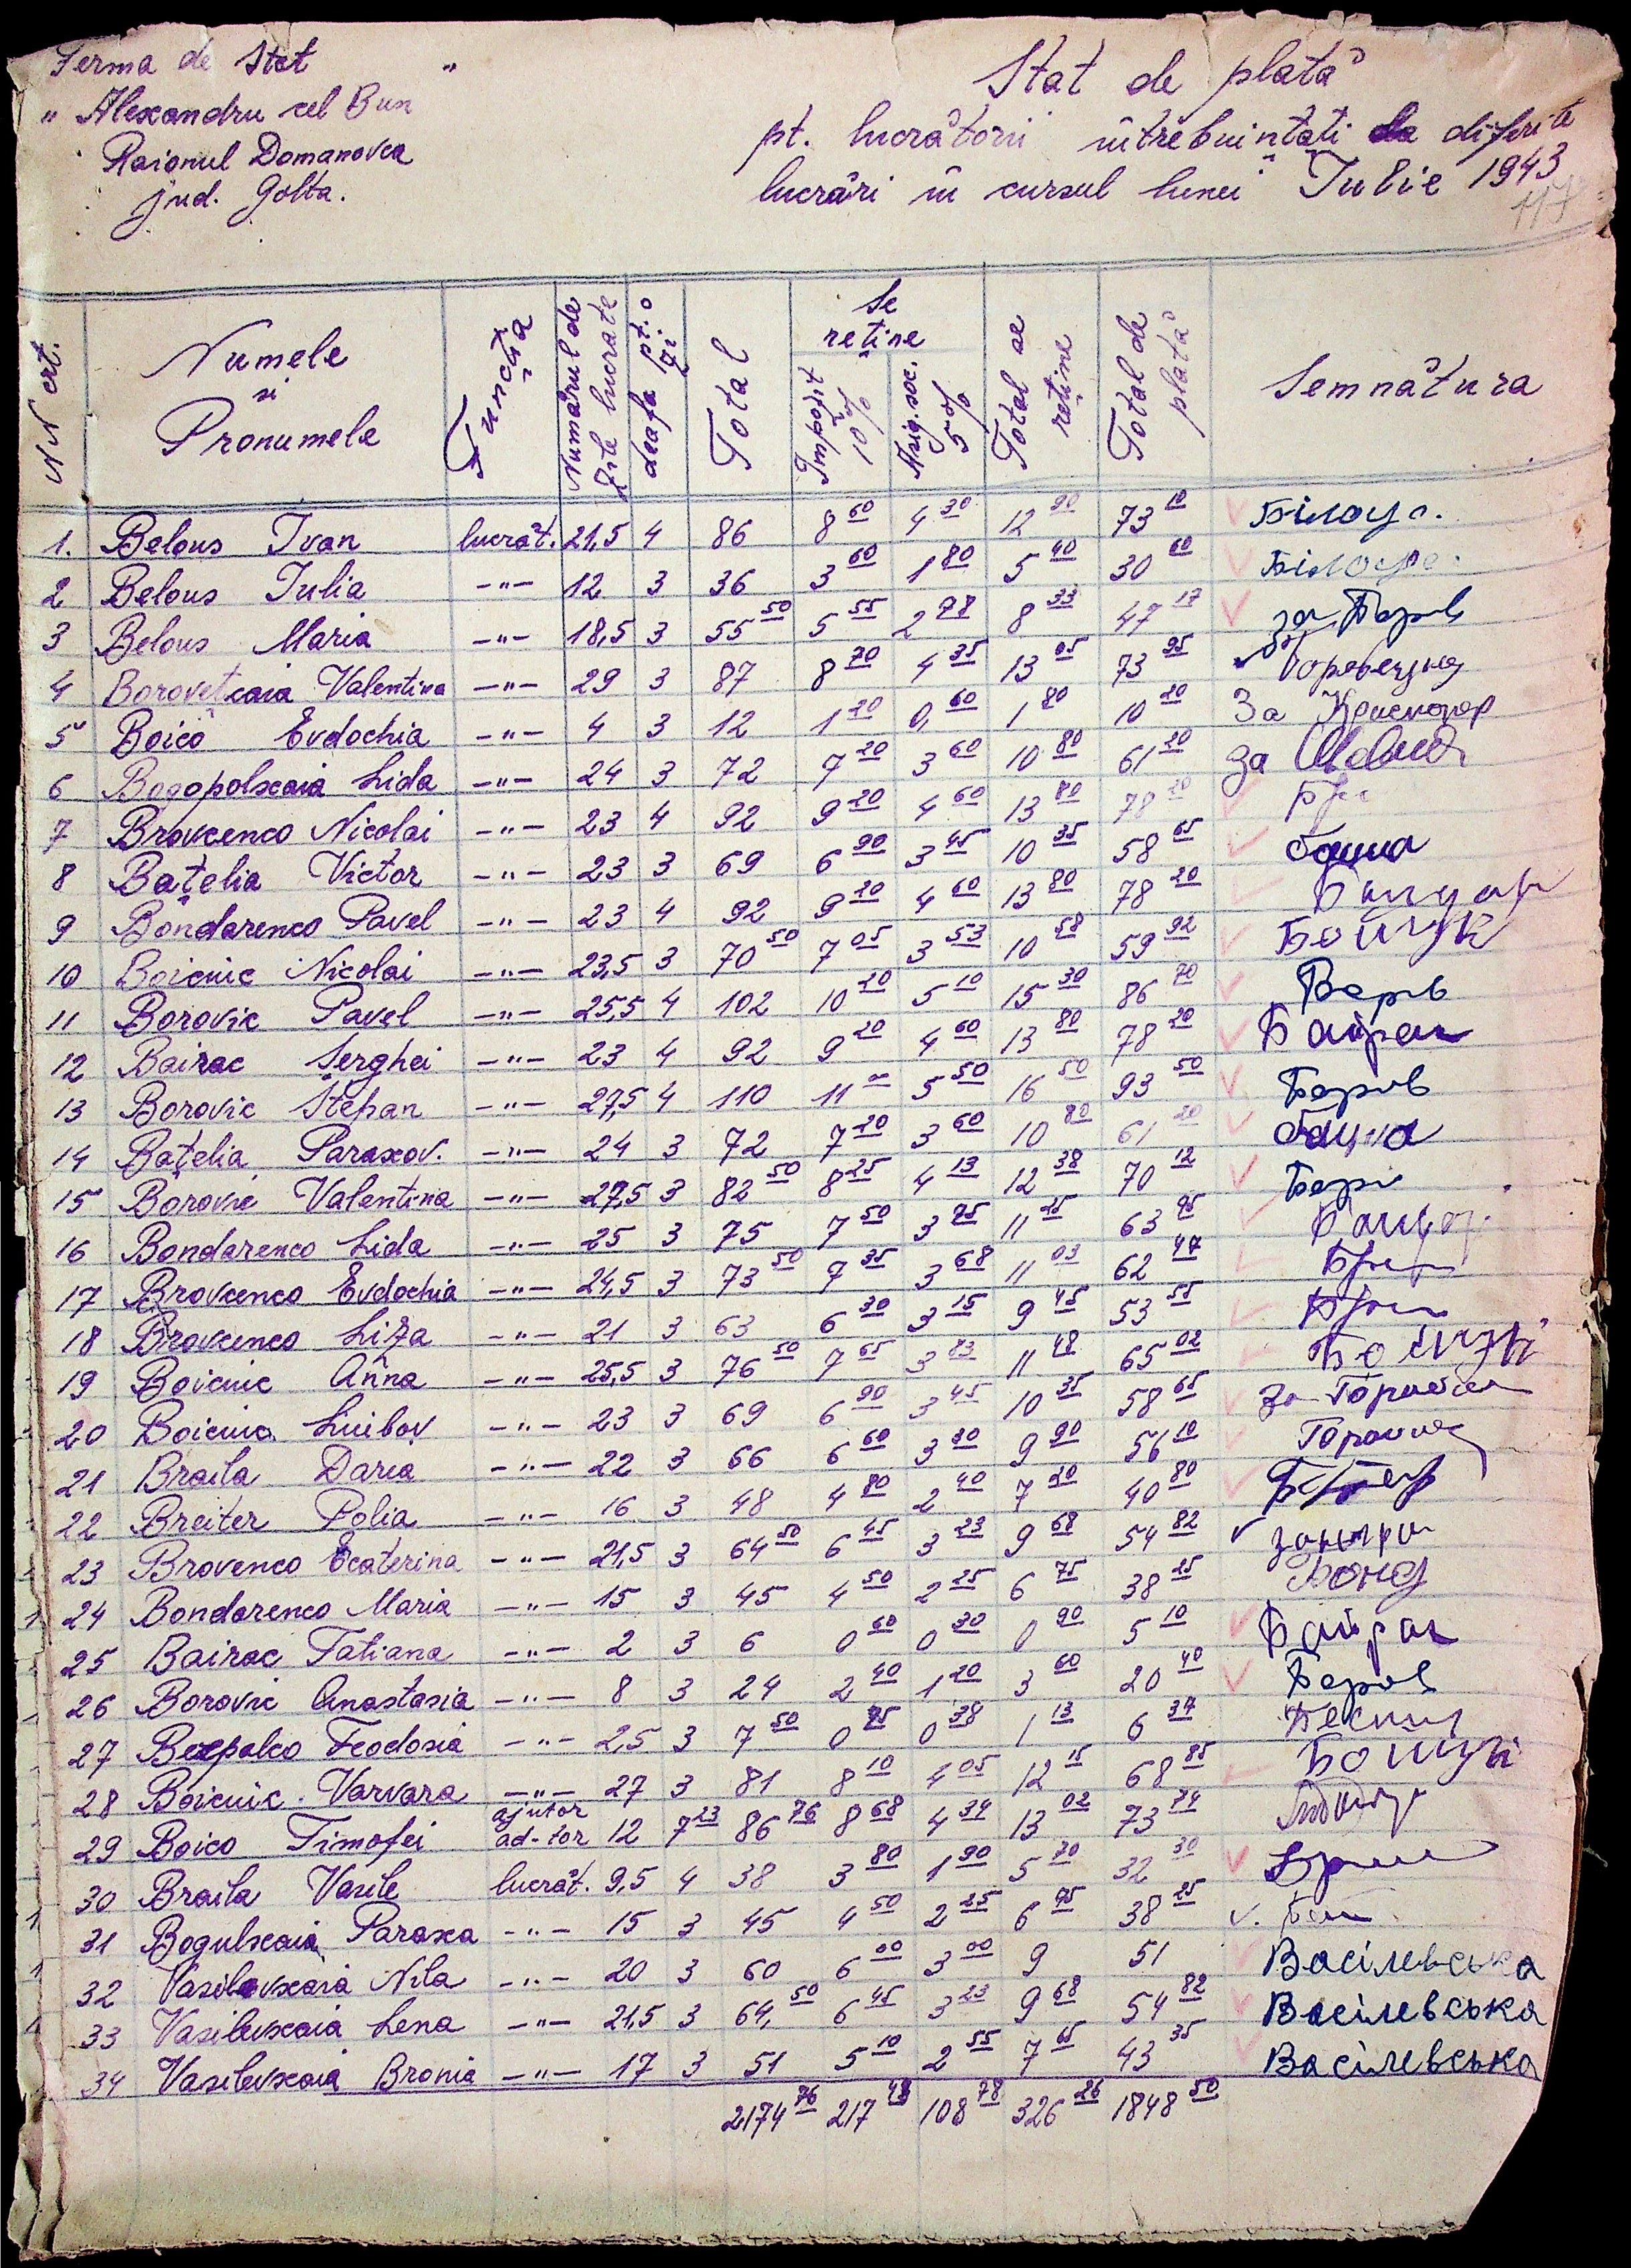 Ferma de Stat
„Alexandru cel Bun"
Raionul Domanovca
jud. Golta.
Stat de plată
pt. lucrătorii întrebuințati la diferite
lucrări în cursul lunei Iulie 1943
117
Nr crt. Numele și Pronumele Funcția Numărul de zile lucrate Leafa pt. o zi Total Se reține Impozit 10% Asig. soc. 5% Total de reține Total de plată Semnătura
1. Belous Ivan lucrăt. 21,5 4 86 8 60 4 30 12 90 73 10 Білоус.
2 Belous Iulia -"- 12 3 36 3 60 1 80 5 40 30 60
3 Belous Maria -"- 18,5 3 55 50 5 55 2 78 8 33 47 17 за Боров
4 Borovețcaia Valentina -"- 29 3 87 8 70 4 35 13 05 73 95
5 Boico Evdochia -"- 4 3 12 1 20 0,60 1 80 10 20 За
6 Bogopolscaia Lida -"- 24 3 72 7 20 3 60 10 80 61 20 за
7 Brovcenco Nicolai -"- 23 4 92 9 20 4 60 13 80 78 20
8 Bațelia Victor -"- 23 3 69 6 90 3 45 10 35 58 65 Баца
9 Bondarenco Pavel -"- 23 4 92 9 20 4 60 13 80 78 20
10 Boicnic Nicolai -"- 23,5 3 70 50 7 05 3 53 10 58 59 92
11 Borovic Pavel -"- 25,5 4 102 10 20 5 10 15 30 86 70 Боров
12 Bairac Serghei -"- 23 4 92 9 20 4 60 13 80 78 20 Байрак
13 Borovic Ștefan -"- 27,5 4 110 11 00 5 50 16 50 93 50 Боров
14 Bațelia Parascov. -"- 24 3 72 7 20 3 60 10 80 61 20 Баца
15 Borovic Valentina -"- 27,5 3 82 50 8 25 4 13 12 38 70 12 Боров
16 Bondarenco Lida -"- 25 3 75 7 50 3 75 11 25 63 75
17 Brovcenco Evdochia -"- 24,5 3 73 50 7 35 3 68 11 03 62 47
18 Brovcenco Liza -"- 21 3 63 6 30 3 15 9 45 53 55
19 Boicnic Anna -"- 25,5 3 76 50 7 65 3 83 11 48 65 02
20 Boicnic Liubov -"- 23 3 69 6 90 3 45 10 35 58 65 За
21 Braila Daria -"- 22 3 66 6 60 3 30 9 90 56 10
22 Breiter Polia -"- 16 3 48 4 80 2 40 7 20 40 80
23 Brovenco Ecaterina -"- 21,5 3 64 50 6 45 3 23 9 68 54 82
24 Bondarenco Maria -"- 15 3 45 4 50 2 25 6 75 38 25 Бонд
25 Bairac Tatiana -"- 2 3 6 0 60 0 30 0 90 5 10 Байрак
26 Borovic Anastasia -"- 8 3 24 2 40 1 20 3 60 20 40 Боров
27 Bezpalco Feodosia -"- 2,5 3 7 50 0 75 0 38 1 13 6 37
28 Boicnic Varvara -"- 27 3 81 8 10 4 05 12 15 68 85
29 Boico Timofei ajutor ad-tor 12 7 23 86 76 8 68 4 34 13 02 73 74
30 Braila Vasile lucrăt. 9,5 4 38 3 80 1 90 5 70 32 30
31 Bogulscaia Parasca -"- 15 3 45 4 50 2 25 6 75 38 25
32 Vasilevscaia Nila -"- 20 3 60 6 00 3 00 9 51 Васілевська
33 Vasilevscaia Lena -"- 21,5 3 64,50 6 45 3 23 9 68 54 82 Васілевська
34 Vasilevscaia Bronia -"- 17 3 51 5 10 2 55 7 65 43 35 Васілевська
2174 76 217 48 108 78 326 26 1848 50